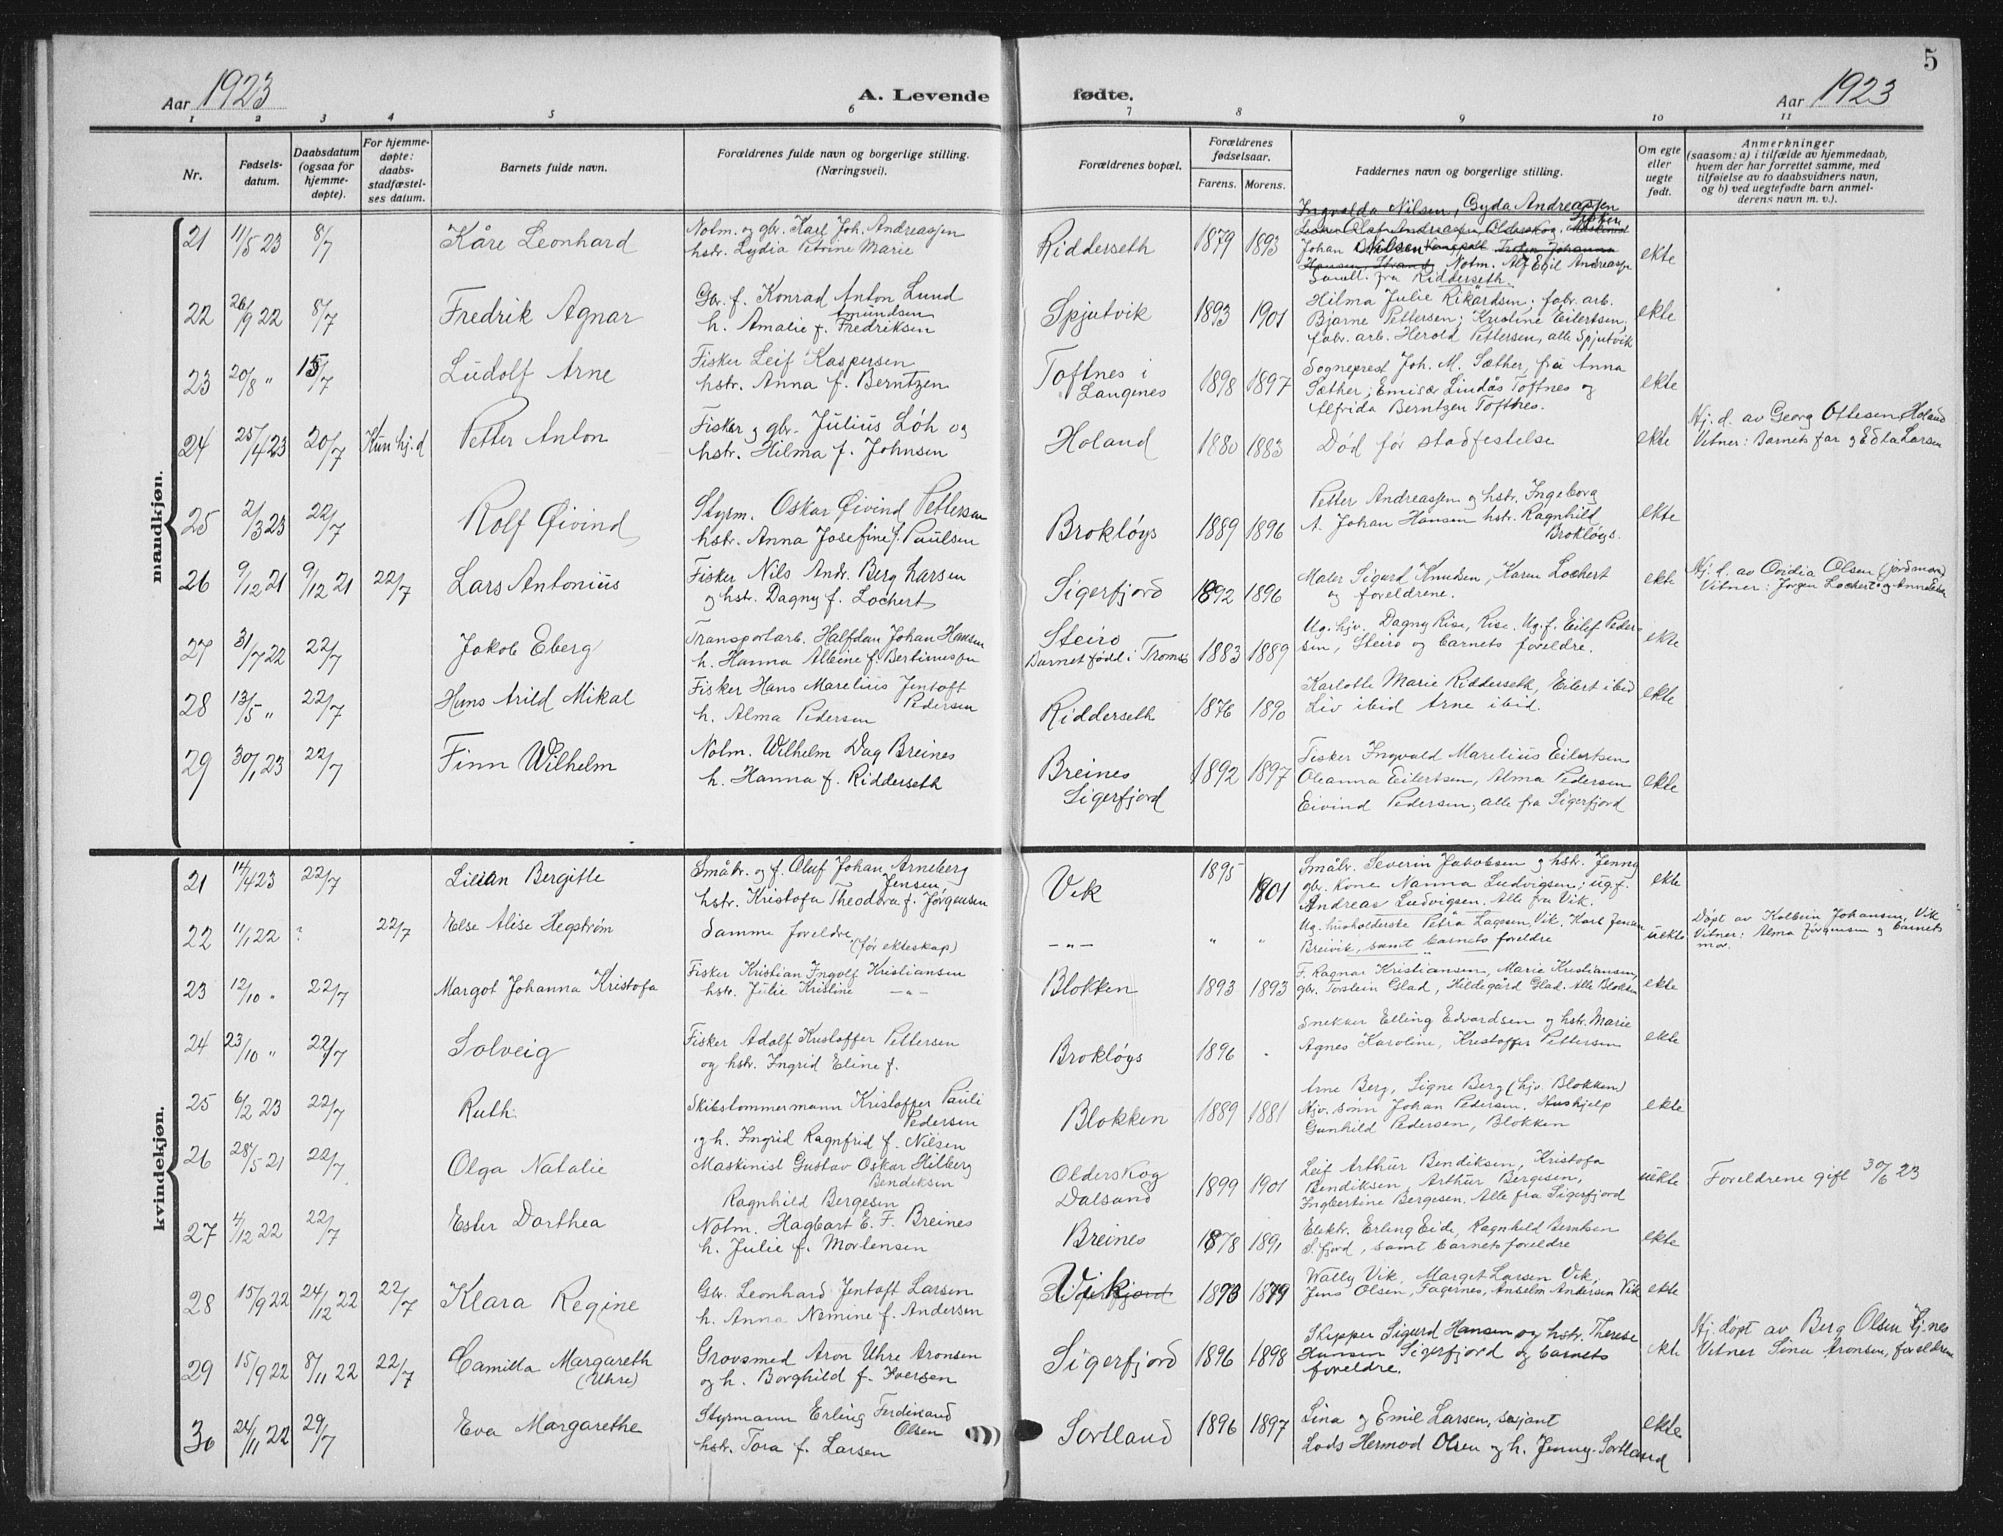 5
Aar 1923
A. Levende fødte.
Aar 1923
1 2 3 4 5 6 7 8 9 10 11
Nr.
Fødsels-
datum.
Daabsdatum
(ogsaa for
hjemme-
døpte).
For hjemme-
døpte:
daabs-
stadfæstel-
ses datum.
Barnets fulde navn.
Forældrenes fulde navn og borgerlige stilling.
(Næringsvei).
Forældrenes bopæl.
Forældrenes
fødselsaar.
Farens. Morens.
Faddernes navn og borgerlige stilling.
Om egte
eller
uegte
født.
Anmerkninger
(saasom: a) i tilfælde av hjemmedaab,
hvem der har forrettet samme, med
tilføielse av to daabsvidners navn,
og b) ved uegtefødte barn anmel-
derens navn m. v.).
mandkjøn.
21 11/5 23 8/7 Kåre Leonhard
Notm. og gbr. Karl Joh. Andreassen
hstr. Lydia Petrine Marie
Ridderseth 1879 1893
Ingvalda Nilsen, Gyda Andreassen
Johan Nilsen
Notm. Alf Egil Andreassen
Samtl. fra Ridderseth.
ekte
22 26/9 22 8/7 Fredrik Agnar
Gbr. f. Konrad Anton Lund
Amundsen
h. Amalie f. Fredriksen
Spjutvik 1893 1901
Hilma Julie Rikardsen; fabr. arb.
Bjarne Pettersen; Kristine Eilertsen,
fabr. arb. Herold Pettersen, alle Spjutvik
ekte
23 20/8 " 15/7 Ludolf Arne
Fisker Leif Kaspersen
hstr. Anna f. Berntzen
Toftnes i
Langenes
1898 1897
Sogneprest Joh. M. Sæther, fru Anna
Sæther; Emisær Lindås Toftnes og
Alfrida Berntzen Toftnes.
ekte
24 25/4 23 20/7 Kun hj.d Petter Anton
Fisker og gbr. Julius Löh og
hstr. Hilma f. Johnsen
Holand 1880 1883
Död för stadfestelse
ekte
Hj. d. av Georg Ottesen, Holand
Vitner: Barnets far og Edta Larsen
25 2/3 23 22/7 Rolf Øivind
Styrm. Oskar Øivind Pettersen
hstr. Anna Josefine f. Paulsen
Brokløys 1889 1896
Petter Andreassen og hstr. Ingeborg
A. Johan Hansen hstr. Ragnhild
Brokløys.
ekte
26 9/12 21 9/12 21 22/7 Lars Antonius
Fisker Nils Andr. Berg Larsen
og hstr. Dagny f. Lochert
Sigerfjord 1892 1896
Maler Sigurd Knudsen, Karen Lochert
og foreldrene.
ekte
Hj. d. av Ovidia Olsen (jordmor)
Vitner: Jørgen Lochert og Anna
27 31/7 22 22/7 Jakob Eberg
Transportarb. Halfdan Johan Hansen
h. Hanna Albine f. Bertinussen
Steiro
Barnet född i Tromsö
1883 1889
Ug. hjv. Dagny Rise, Rise. Ug. f. Eilef Peder-
sen, Steirö og barnets foreldre.
ekte
28 13/5 " 22/7 Hans Arild Mikal
Fisker Hans Marelius Jentoft
Pedersen
h. Alma Pedersen
Ridderseth 1876 1890
Karlotte Marie Ridderseth, Eilert ibid
Liv ibid Arne ibid.
ekte
29 30/1 23 22/7 Finn Wilhelm
Notm. Wilhelm Dag Breines
h. Hanna f. Ridderseth
Breines
Sigerfjord
1892 1897
Fisker Ingvald Marelius Eilertsen
Oleanna Eilertsen, Alma Pedersen
Eivind Pedersen, alle fra Sigerfjord
ekte
kvindekjøn.
21 14/4 23 22/7 Lilian Bergitte
Småbr. og f. Oluf Johan Arneberg
Jensen
hstr. Kristofa Theodora f. Jørgensen
Vik 1895 1901
Småbr. Severin Jakobsen og hstr. Jenny
gbr. Kone Nanna Ludvigsen; ug. f.
Andreas Ludvigsen. Alle fra Vik.
ekte
22 11/1 22 ? 22/7 Else Alise Hegstrøm
Samme foreldre
(før ekteskap)
—"— " "
Ug. husholderske Petra Lagesen, Vik, Karl Jensen
Breivik, samt barnets foreldre
uekte
Döpt av Kolbein Johansen, Vik
Vitner: Alma Jørgensen og barnets
mor.
23 12/10 " 22/7 Margot Johanna Kristofa
Fisker Kristian Ingolf Kristiansen
hstr. Julie Kristine —"—
Blokken 1893 1893
F. Ragnar Kristiansen, Marie Kristiansen,
gbr. Torstein Glad, Hildegård Glad. Alle Blokken
ekte
24 23/10 " 22/7 Solveig
Fisker Adolf Kristoffer Pettersen
og hstr. Ingrid Eline f.
Brokløys 1896 .
Snekker Elling Edvardsen og hstr. Marie
Agnes Karoline, Kristoffer Pettersen
ekte
25 6/2 23 22/7 Ruth
Skibstommermann Kristoffer Pauli
Pedersen
og h. Ingrid Ragnfrid f. Nilsen
Blokken 1889 1881
Arne Berg, Signe Berg (hjv. Blokken)
Hjv. sønn Johan Pedersen. Hushjelp
Gunhild Pedersen, Blokken
ekte
26 28/5 21 22/7 Olga Natalie
Maskinist Gustav Oskar Hilberg
Bendiksen
Ragnhild Bergesen
Olderskog
Dalsand
1899 1901
Leif Arthur Bendiksen, Kristofa
Bendiksen, Arthur Bergesen,
Ingbertine Bergesen. Alle fra Sigerfjord
uekte
Foreldrene gift 30/6 23
27 4/12 22 22/7 Ester Dorthea
Notm. Hagbart E. F. Breines
h. Julie f. Mortensen
Breines 1878 1891
Elektr. Erling Eide, Ragnhild Berntsen
S.fjord, samt barnets foreldre
ekte
28 15/9 22 24/12 22 22/7 Klara Regine
Gbr. Leonhard Jentoft Larsen
h. Anna Nomine f. Andersen
Vik 1893 1899
Wally Vik, Margot Larsen Vik,
Jens Olsen, Fagernes, Anselm Andersen Vik
ekte
29 15/9 22 8/11 22 22/7 Camilla Margareth
(Uhre)
Grovsmed Aron Uhre Aronsen
og h. Borghild f. Iversen
Sigerfjord 1896 1898
Skipper Sigurd Hansen og hstr. Therese
Hansen Sigerfjord og barnets
foreldre.
ekte
Hj. döpt av Berg Olsen Kj.nes
Vitner Lina Aronsen, foreldrene
30 24/11 22 29/7 Eva Margarethe
Styrmann Erling Ferdinand
Olsen
hstr. Tora f. Larsen
Sortland 1896 1897
Lina og Emil Larsen, sersjant
Lods Hermod Olsen og h. Jenny. Sortland
ekte